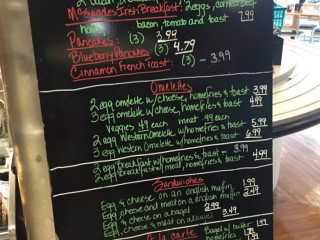 McGuades Irish Breakfast: 2 eggs, corned beef
bacon, tomato and toast 7.99
Pancakes: (3) 3.99
Blueberry Pancakes: (3) 4.79
Cinnamon French Toast: (3) - 3.99
Omelettes
2 egg omelette w/cheese, homefries & toast 3.99
3 egg omelette w/cheese, homefries & toast 4.99
Veggies .49 each meat .99 each
2 egg Western Omelette w/homefries & toast 5.99
3 egg Western Omelette w/homefries & toast 6.99
2 egg breakfast w/homefries & toast - 3.99
2 egg breakfast w/meat, homefries & toast - 4.99
Sandwiches
Egg & cheese on an english muffin 1.99
Egg cheese and meat on a english muffin 2.49
Egg & cheese on a bagel 2.99
Egg, cheese & meat on a bagel 3.49
A la carte
Bagel w/ butter 1.49
Homefries 1.99